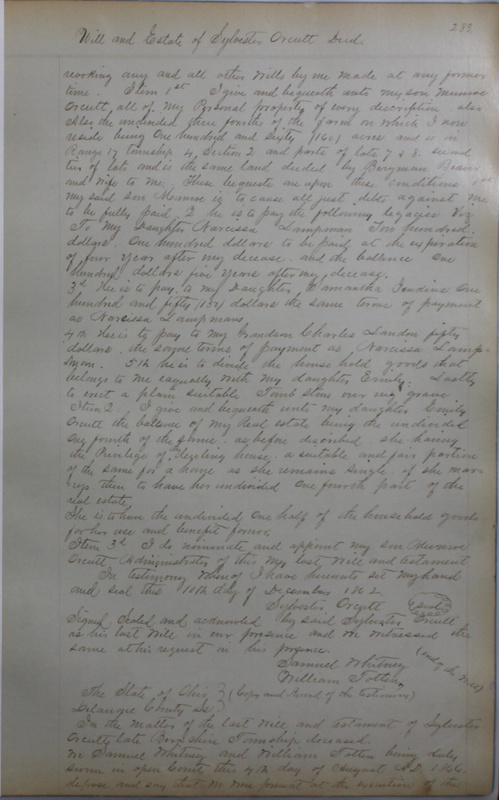 283
Will and Estate of Sylvester Orcutt Decd.
revoking any and all other Wills by me made at any former
time. Item 1st I give and bequeath unto my son Munroe
Orcutt, all of My Personal property of every description also
Also the undivided three fourths of the farm on which I now
reside being One hundred and Sixty (160) acres and is in
Range 17 township 4, Section 2 and parts of lots 7 & 8.
of lots and is the same land deeded by Bergman
and Wife to Me. These bequests are upon these conditions 1st
my said son Monroe is to cause all just debts against me
to be fully paid, 2 he is to pay the following legacies Viz
To My Daughter Narcissa Lampman Two hundred
dollars. One hundred dollars to be paid at the expiration
of four year after my decease. and the ballance One
hundred dollars five years after my decease.
3d He is to pay to my Daughter, Samantha One
hundred and fifty (150) dollars the same terms of payment
as Narcissa Lampmans
4th He is to pay to my Grandson Charles Landon fifty
dollars. the same terms of payment as Narcissa Lamp-
man. 5th he is to divide the house hold goods that
belongs to me equally with my daughter Emily. Lastly
to erect a plain suitable Tomb Stone over my grave
Item 2. I give and bequeath unto my daughter Emily
Orcutt the balance of my Real estate being the undivided
One fourth of the farm. as before described she having
the Privilege of house. a suitable and fair portion
of the same for a home as she remains single, if she mar-
rys. then to have her undivided One fourth part of the
real estate,
She is to have the undivided One half of the household goods
for her use and benefit forever,
Item 3d I do nominate and appoint my son Munroe
Orcutt Administrator of this My last Will and testament
In testimony whereof I have hereunto set my hand
and seal this 10th day of December 1862
Sylvester Orcutt (Seal)
Signed Sealed and acknowledged by said Sylvester Orcutt
as his last Will in our presence and we witnessed the
same at his request in his presence.
(end of the Will)
Samuel Whitney
William Totten
The State of Ohio } (Copy and Record of the testimony)
Delaware County ss. }
In the matter of the last Will and testament of Sylvester
Orcutt late Berkshire Township deceased.
We Samuel Whitney and William Totten being duly
sworn in open Court this 4th day of August A.D. 1866.
depose and say that we were present at the execution of the